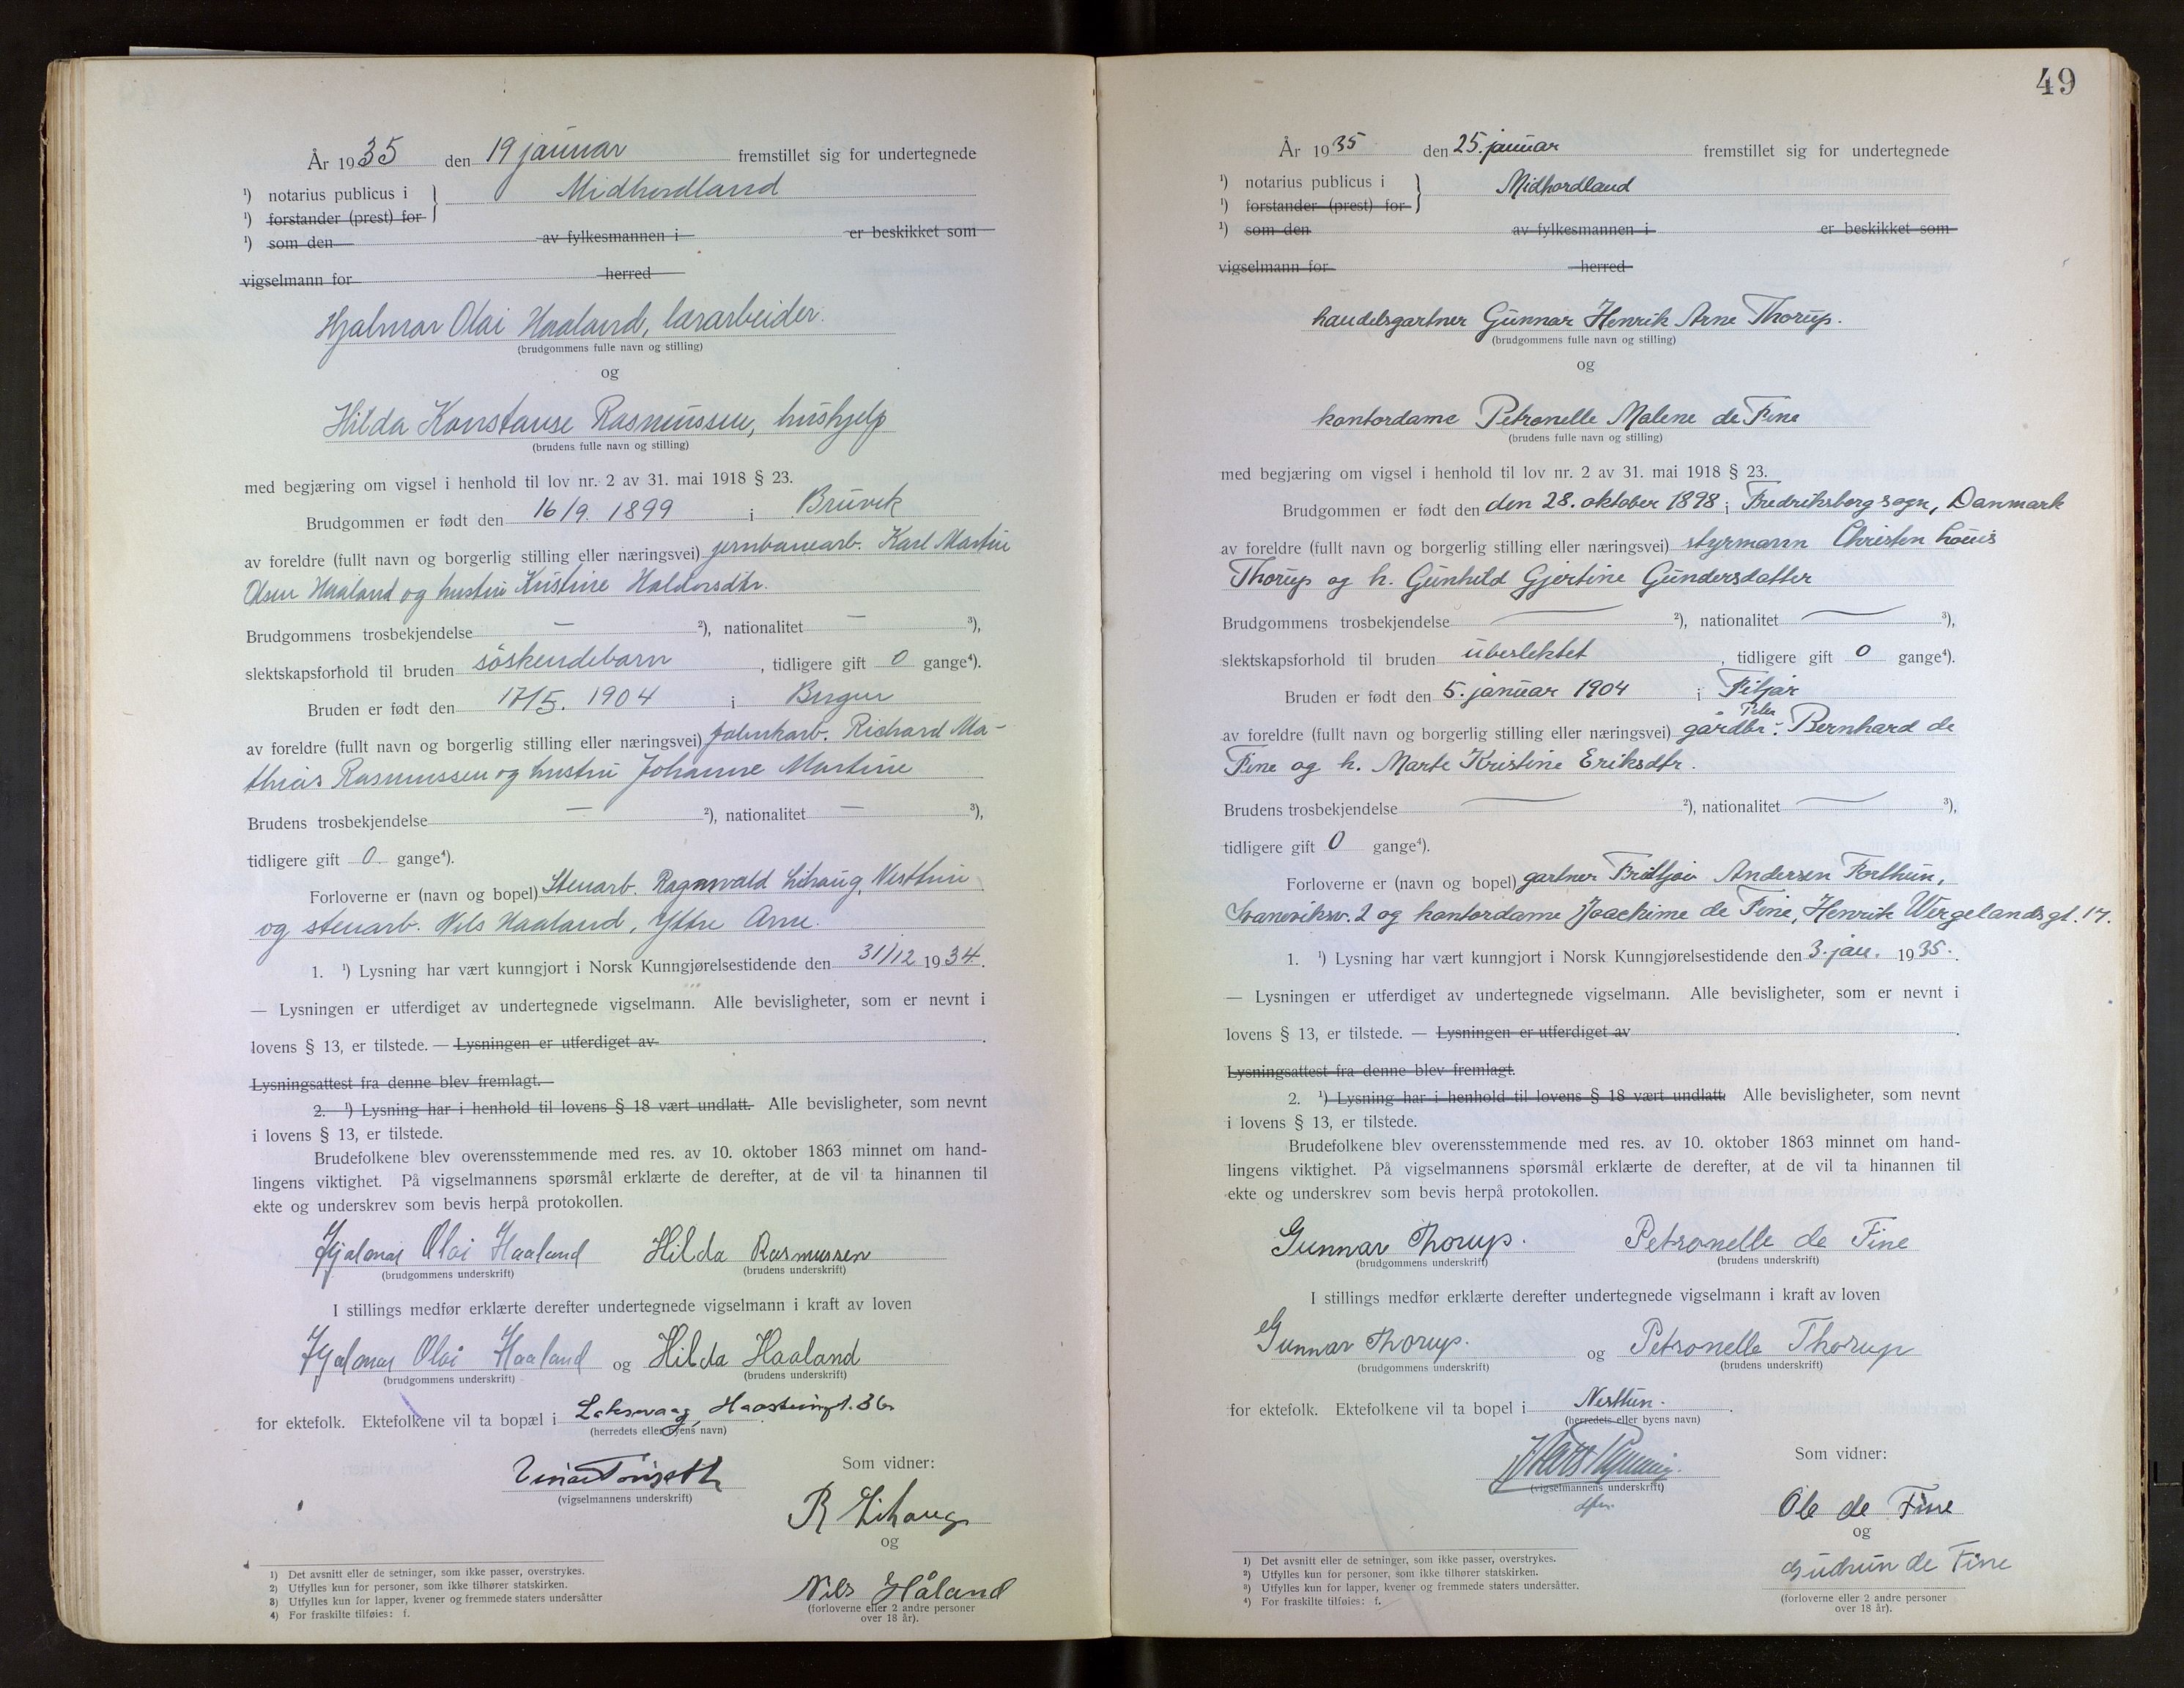 År 1935 den 19 januar fremstillet sig for undertegnede
¹) notarius publicus i } Midhordland
¹) forstander (prest) for
¹) som den av fylkesmannen i er beskikket som
vigselmann for herred
Hjalmar Olai Haaland, lærarbeider.
(brudgommens fulle navn og stilling)
og
Hilda Konstanse Rasmussen, hushjelp
(brudens fulle navn og stilling)
med begjæring om vigsel i henhold til lov nr. 2 av 31. mai 1918 § 23.
Brudgommen er født den 16/9. 1899 i Bruvik
av foreldre (fullt navn og borgerlig stilling eller næringsvei) jernbanearb. Karl Martin
Olsen Haaland og hustru Kristine Haldorsdtr.
Brudgommens trosbekjendelse — ²), nationalitet — ³),
slektskapsforhold til bruden söskendebarn, tidligere gift 0 gange⁴).
Bruden er født den 17/5. 1904 i Bergen
av foreldre (fullt navn og borgerlig stilling eller næringsvei) fabrikarb. Richard Ma-
thias Rasmussen og hustru Johanne Martine
Brudens trosbekjendelse — ²), nationalitet — ³),
tidligere gift 0 gange⁴).
Forloverne er (navn og bopel) Stenarb. Ragnvald Lihaug, Nesttun
og stenarb. Nils Haaland, Ytre Arne.
1. ¹) Lysning har vært kunngjort i Norsk Kunngjørelsestidende den 31/12 1934.
— Lysningen er utferdiget av undertegnede vigselmann. Alle bevisligheter, som er nevnt i
lovens § 13, er tilstede. — Lysningen er utferdiget av .
Lysningsattest fra denne blev fremlagt.
2. ¹) Lysning har i henhold til lovens § 18 vært undlatt. Alle bevisligheter, som nevnt
i lovens § 13, er tilstede.
Brudefolkene blev overensstemmende med res. av 10. oktober 1863 minnet om hand-
lingens viktighet. På vigselmannens spørsmål erklærte de derefter, at de vil ta hinannen til
ekte og underskrev som bevis herpå protokollen.
Hjalmar Olai Haaland Hilda Rasmussen
(brudgommens underskrift) (brudens underskrift)
I stillings medfør erklærte derefter undertegnede vigselmann i kraft av loven
Hjalmar Olai Haaland og Hilda Haaland
(brudgommens underskrift) (brudens underskrift)
for ektefolk. Ektefolkene vil ta bopæl i Laksevaag,
(herredets eller byens navn)
Som vidner:
(vigselmannens underskrift)
R Lihaug
og
Nils Håland
(forloverne eller 2 andre personer
over 18 år).
1) Det avsnitt eller de setninger, som ikke passer, overstrykes.
2) Utfylles kun for personer, som ikke tilhører statskirken.
3) Utfylles kun for lapper, kvener og fremmede staters undersåtter
4) For fraskilte tilføies: f.
49
År 1935 den 25. januar fremstillet sig for undertegnede
¹) notarius publicus i } Midhordland
¹) forstander (prest) for
¹) som den av fylkesmannen i er beskikket som
vigselmann for herred
handelsgartner Gunnar Henrik Arne Thorup.
(brudgommens fulle navn og stilling)
og
kontordame Petronelle Malene de Fine
(brudens fulle navn og stilling)
med begjæring om vigsel i henhold til lov nr. 2 av 31. mai 1918 § 23.
Brudgommen er født den den 28. oktober 1898 i Fredriksborg sogn, Danmark
av foreldre (fullt navn og borgerlig stilling eller næringsvei) styrmann Christen Louis
Thorup og h. Gunhild Gjertine Gundersdatter
Brudgommens trosbekjendelse — ²), nationalitet — ³),
slektskapsforhold til bruden ubeslektet, tidligere gift 0 gange⁴).
Bruden er født den 5. januar 1904 i Fitjar
Peder
av foreldre (fullt navn og borgerlig stilling eller næringsvei) gårdbr. Bernhard de
Fine og h. Marte Kristine Eriksdtr.
Brudens trosbekjendelse — ²), nationalitet — ³),
tidligere gift 0 gange⁴).
Forloverne er (navn og bopel) gartner Fridtjov Andersen Forthun,
Svaneviksv. 2 og kontordame Joachime de Fine, Henrik Wergelandsgt. 17.
1. ¹) Lysning har vært kunngjort i Norsk Kunngjørelsestidende den 3. jan. 1935.
— Lysningen er utferdiget av undertegnede vigselmann. Alle bevisligheter, som er nevnt i
lovens § 13, er tilstede. — Lysningen er utferdiget av .
Lysningsattest fra denne blev fremlagt.
2. ¹) Lysning har i henhold til lovens § 18 vært undlatt. Alle bevisligheter, som nevnt
i lovens § 13, er tilstede.
Brudefolkene blev overensstemmende med res. av 10. oktober 1863 minnet om hand-
lingens viktighet. På vigselmannens spørsmål erklærte de derefter, at de vil ta hinannen til
ekte og underskrev som bevis herpå protokollen.
Gunnar Thorup. Petronelle de Fine
(brudgommens underskrift) (brudens underskrift)
I stillings medfør erklærte derefter undertegnede vigselmann i kraft av loven
Gunnar Thorup. og Petronelle Thorup
(brudgommens underskrift) (brudens underskrift)
for ektefolk. Ektefolkene vil ta bopel i Nesttun.
(herredets eller byens navn)
Som vidner:
(vigselmannens underskrift)
Ole de Fine
og
Gudrun de Fine
(forloverne eller 2 andre personer
over 18 år).
¹) Det avsnitt eller de setninger, som ikke passer, overstrykes.
²) Utfylles kun for personer, som ikke tilhører statskirken.
³) Utfylles kun for lapper, kvener og fremmede staters undersåtter.
⁴) For fraskilte tilføies: f.